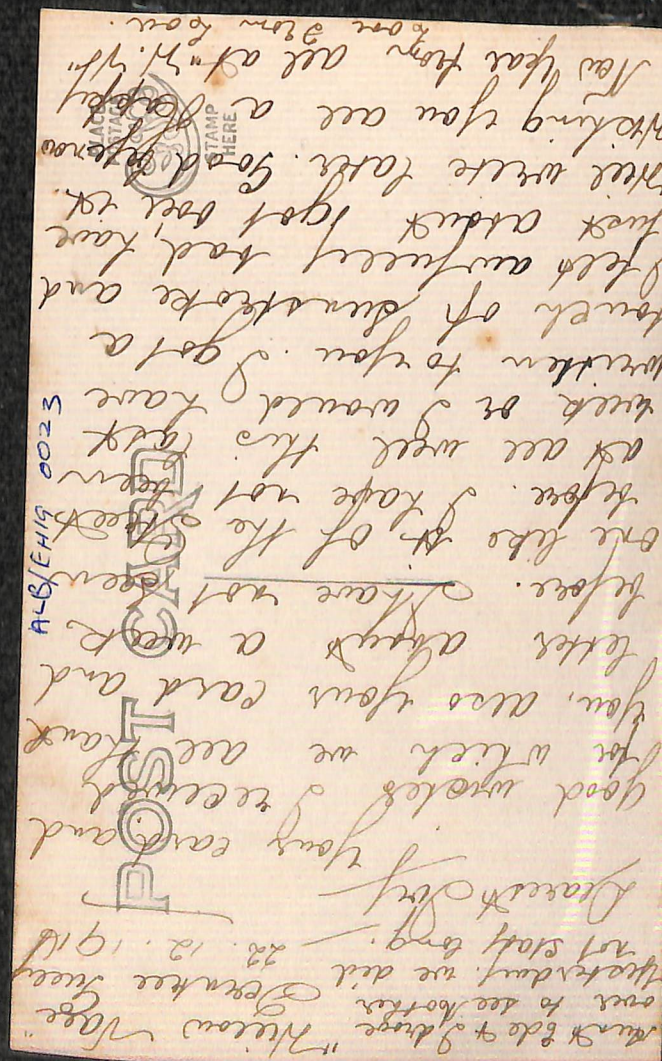 Aunt Ede & I drove "Willow Vale"
over to see Mother Gully
yesterday. we did
not stay long. — 22.12.191
Dearest Ivy
Your card and
good wishes I received
for which we all thank
you, also your card and
letter about a week
before. I have not seen
one like it of the Street
before. I have not been
at all well this last
week or I would have
written to you. I got a
touch of sunstroke and
I felt awfully bad, have
just about got over it.
Will write later. Goodbye now
Wishing you all a Happy
New Year from all at "W.V."
Love from Lou.
POST CARD
PLACE
STAMP
HERE
ALB/EHIG 0023